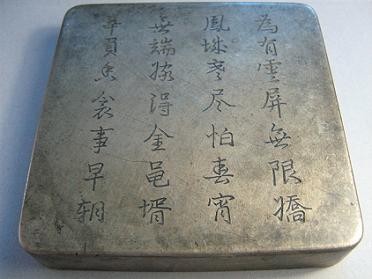 為有雲屏無限嬌
鳳城寒尽怕春宵
無端嫁得金龜婿
辜負香衾事早朝